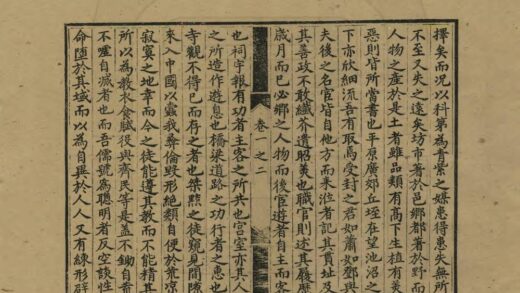 擇矣而况以科第為青紫之媒患得患失無所
不至又失之遠矣坊市著於邑鄉都著於野而
人物之產於是土者雖品類有高下生植有美
惡則皆所當書也平原廣郊丘垤在望池沼之
下亦欣細流吾有取焉受封之君如蕭如鄧與
夫後之名宦皆自他方而来涖者記其貫址及
其善政不敢纖芥遺昭美也職官則述其履歷
歲月而已必鄉之人物而後宦遊者自主而客
卷一之二
也祠宇報有功者主客之所共也宮室亦其人
之所造作遊息也橋梁道路之功行者之惠也
寺觀不得已而存之者也桀黠之徒窺見間隙
來入中國以蠱我彝倫毀形絶類自便於荒凉
寂寞之地幸而今之徒能遵其教而不能精其
所以為教衣食賦役與齊民等是盖不鋤自
不 自滅者也而吾儒號為聰明者反空談性
命墮於其域而以為自異於人人又有練形辟